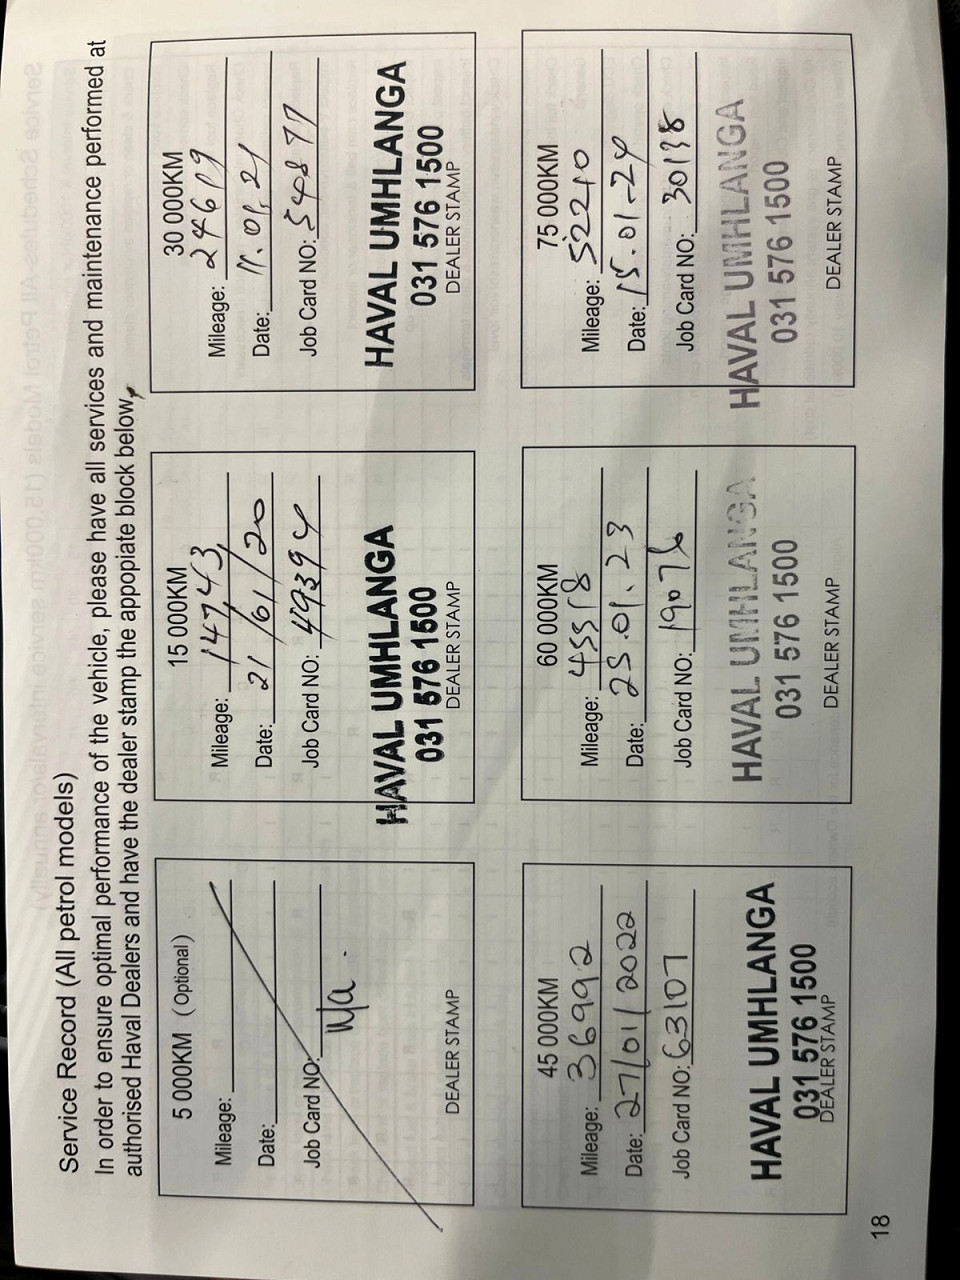 Service Record (All petrol models)
In order to ensure optimal performance of the vehicle, please have all services and maintenance performed at
authorised Haval Dealers and have the dealer stamp the appopiate block below,
5 000KM (Optional)
Mileage:
Date:
Job Card NO:
N/a.
DEALER STAMP
15 000KM
Mileage: 14743
Date: 21/01/20
Job Card NO: 49394
HAVAL UMHLANGA
031 576 1500
DEALER STAMP
30 000KM
Mileage: 24619
Date: 11.01.21
Job Card NO: 54877
HAVAL UMHLANGA
031 576 1500
DEALER STAMP
45 000KM
Mileage: 36992
Date: 27/01/2022
Job Card NO: 63107
HAVAL UMHLANGA
031 576 1500
DEALER STAMP
60 000KM
Mileage: 45518
Date: 25.01.23
Job Card NO: 19076
HAVAL UMHLANGA
031 576 1500
DEALER STAMP
75 000KM
Mileage: 52210
Date: 15.01-24
Job Card NO: 30138
HAVAL UMHLANGA
031 576 1500
DEALER STAMP
18